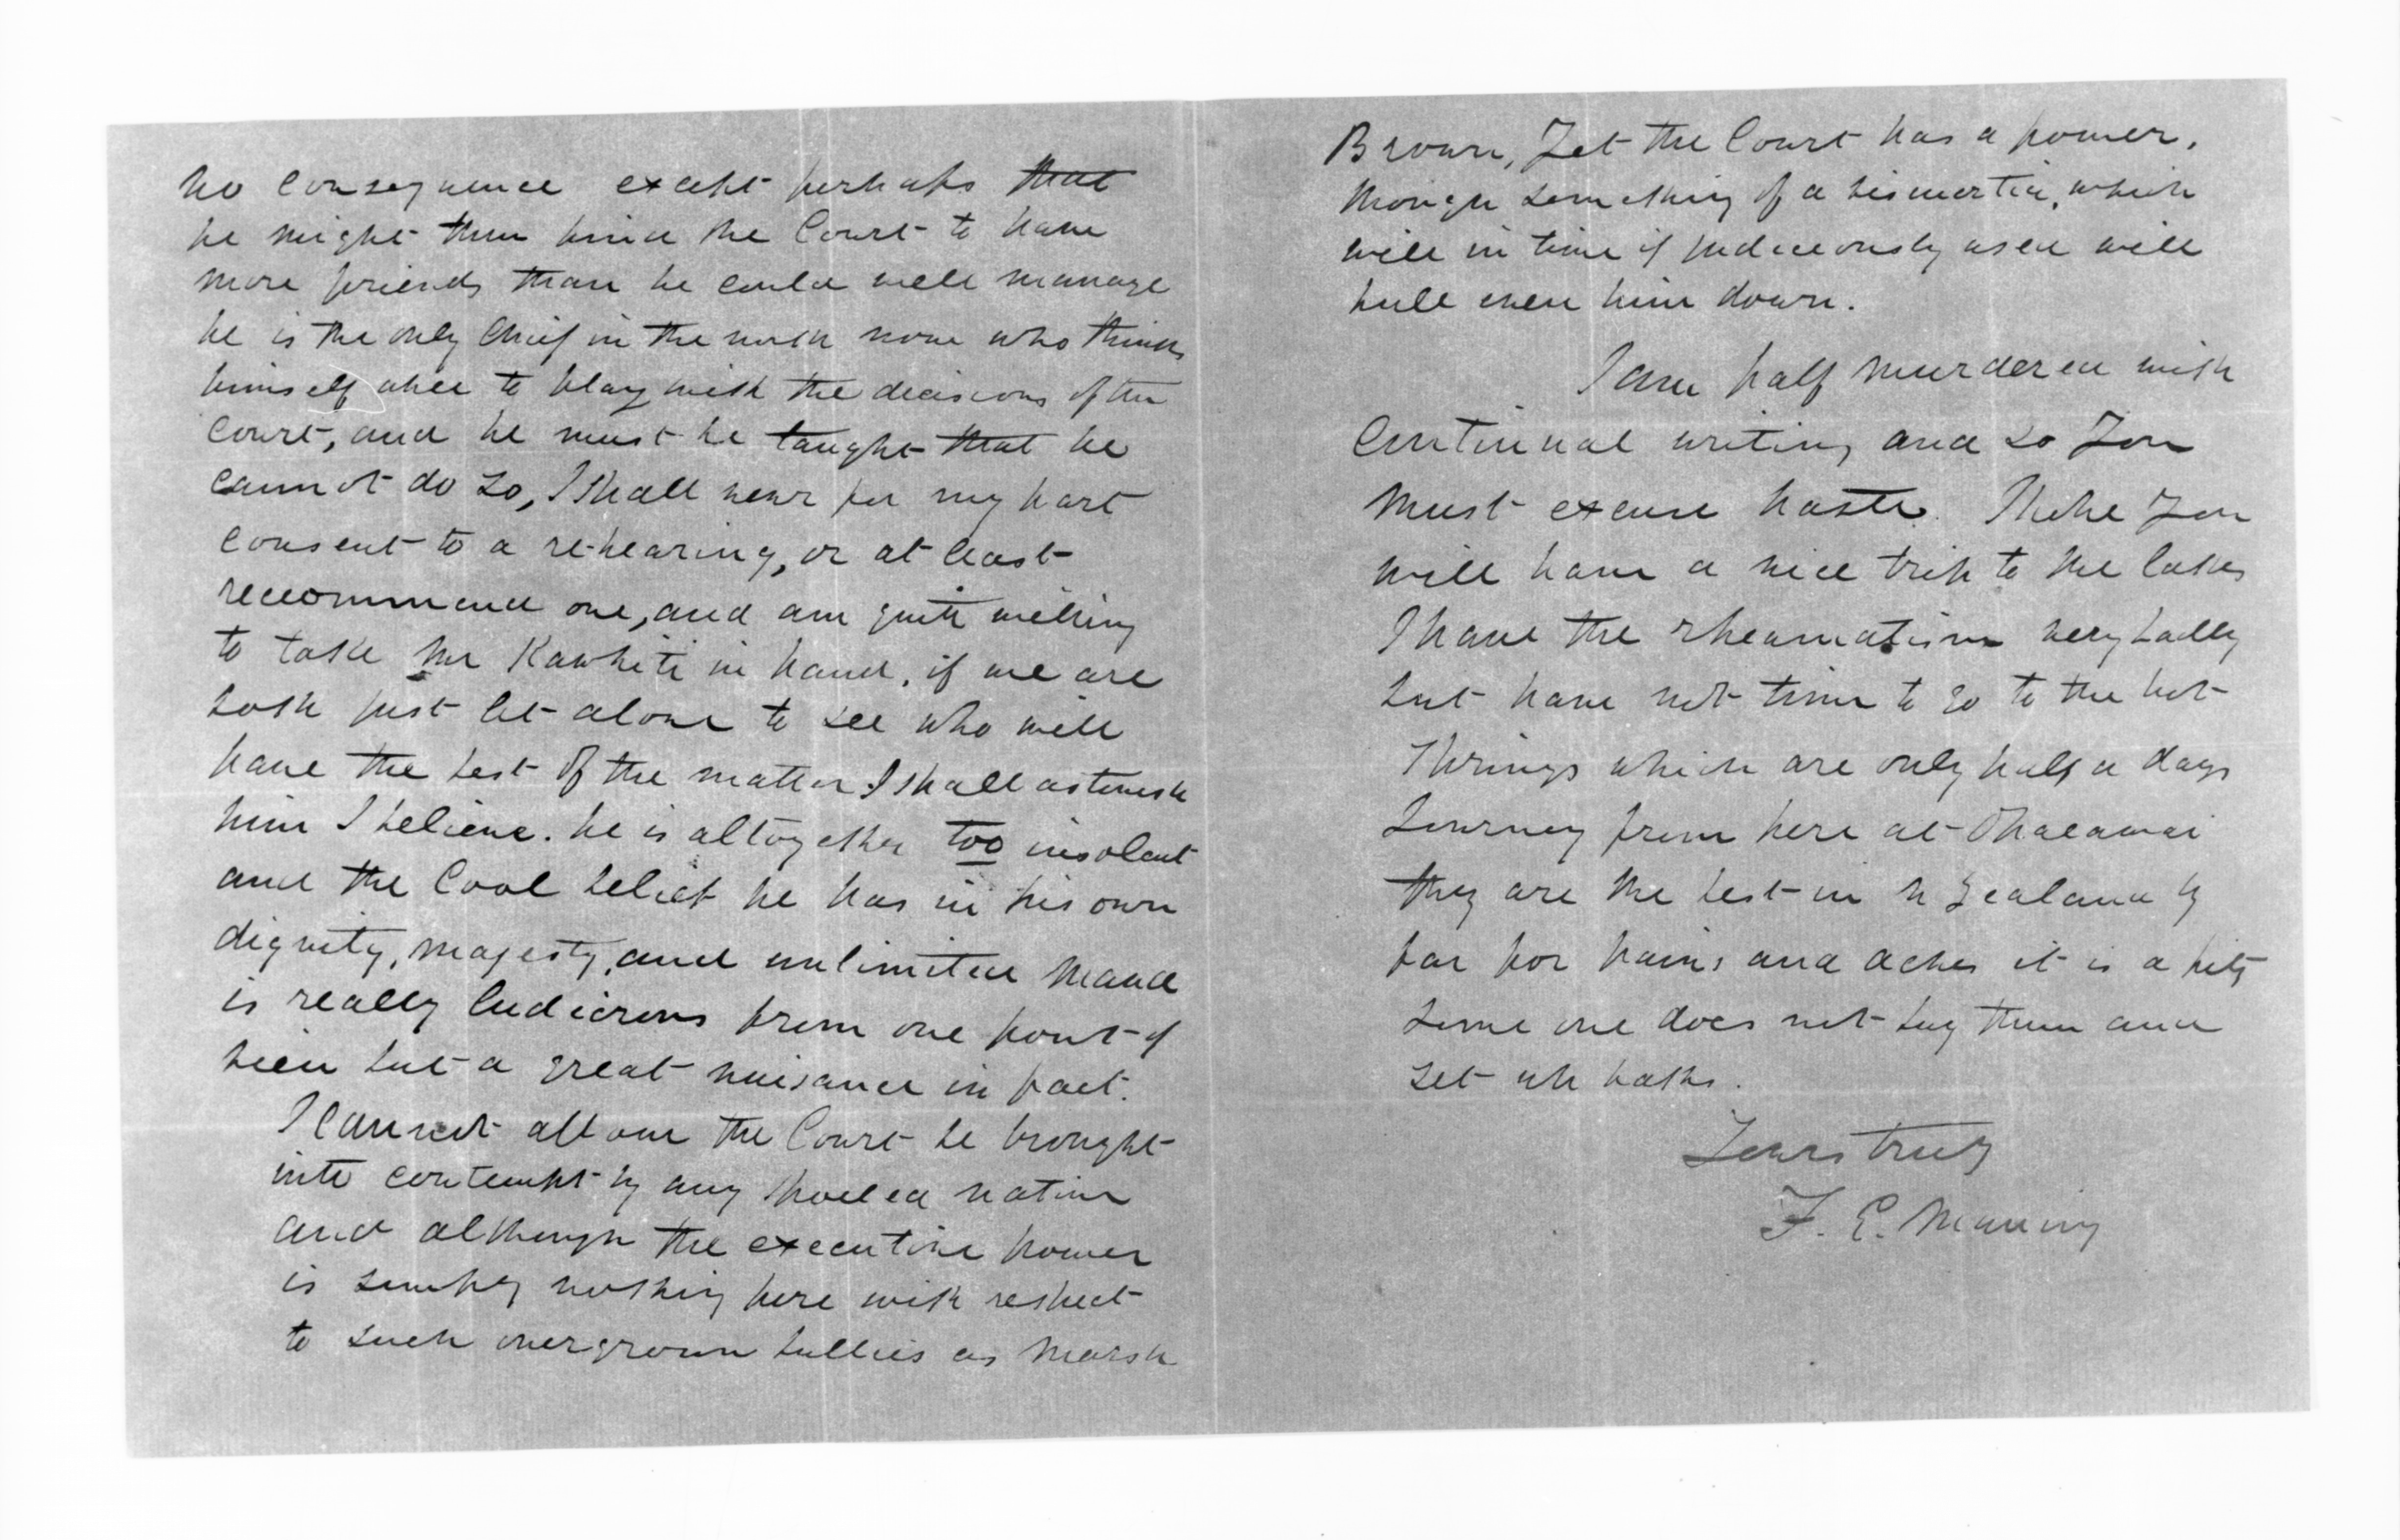 no consequence except perhaps that
he might then find the Court to have
more friends than he could well manage
he is the only Chief in the north now who thinks
himself able to play with the decisions of the
Court, and he must be taught that he
cannot do so, I shall never for my part
consent to a re-hearing, or at least
reccommend one, and am quite willing
to take Mr Kawhiti in hand, if we are
both just let alone to see who will
have the best of the matter I shall astonish
him I believe. he is altogether too insolent
and the Cool belief he has in his own
dignity, majesty, and unlimited mana
is really ludicrous from one point of
view but a great nuisance in fact.
I cannot allow the Court be brought
into contempt by any spoiled native
and although the executive power
is simply nothing here with respect
to such overgrown bullies as Marsh
Brown, Yet the Court has a power,
though something of a vis inertia, which
will in time if judiceously used will
pull even him down.
I am half murdered with
Continual writing and so You
must excuse haste. I hope You
will have a nice trip to the lakes
I have the rheumatism very badly
but have not time to go to the hot
Springs which are only half a days
Journey from here at Ohaeawai
they are the best in N Zealand by
far for pains and aches it is a pity
some one does not buy them and
set up baths.
Yours truly
F. E. Maning